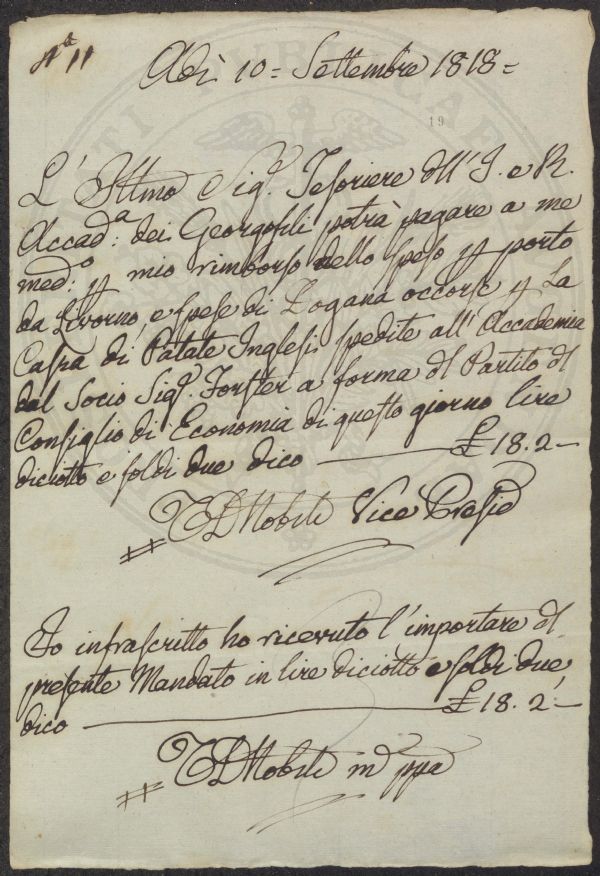 N° 11
Adì 10 = Settembre 1818 =
19
L' Illmo Sig.r Tesoriere dell' I. e R.
Accad.a dei Georgofili potrà pagare a me
med.o p mio rimborso dello speso p porto
da Livorno, e spese di Dogana occorse p La
Cassa di Patate Inglesi spedite all' Accademia
dal Socio Sig.r Forster a forma del Partito del
Consiglio di Economia di questo giorno lire
diciotto e soldi due dico — £ 18. 2 —
Nobili Vice Preside
Io infrascritto ho ricevuto l' importare del
presente Mandato in lire diciotto e soldi due
dico — £ 18. 2 —
Nobili m ppa